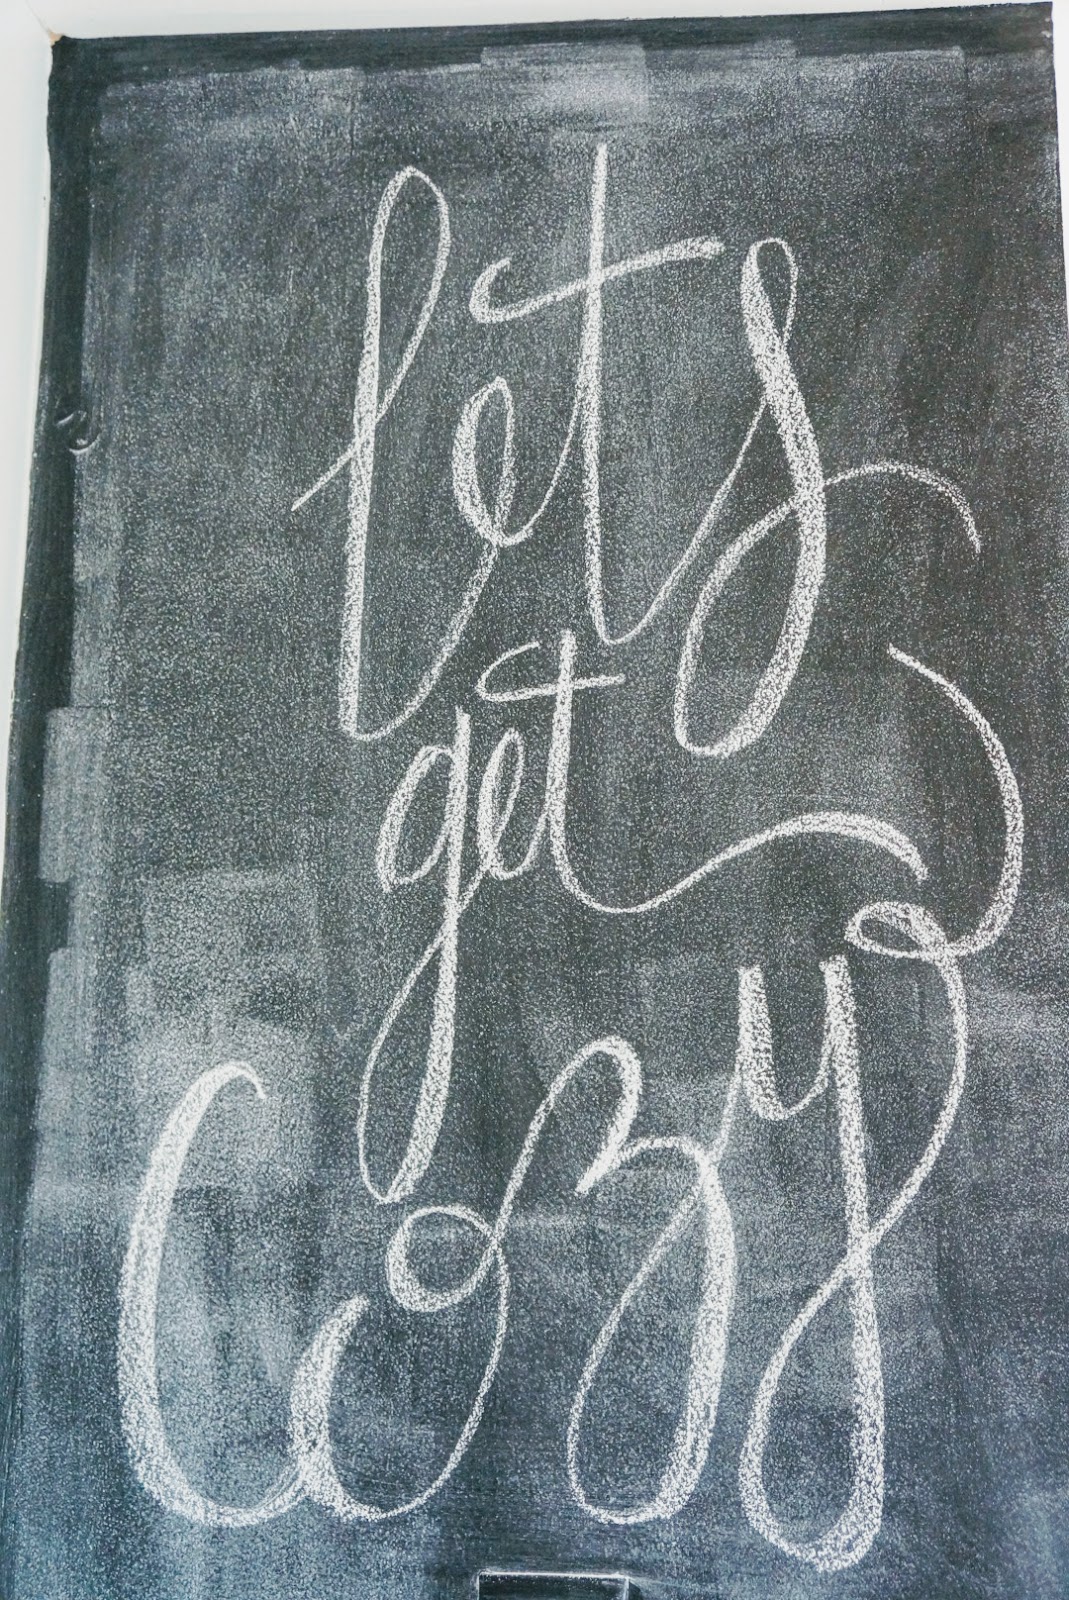 lets
get
cozy